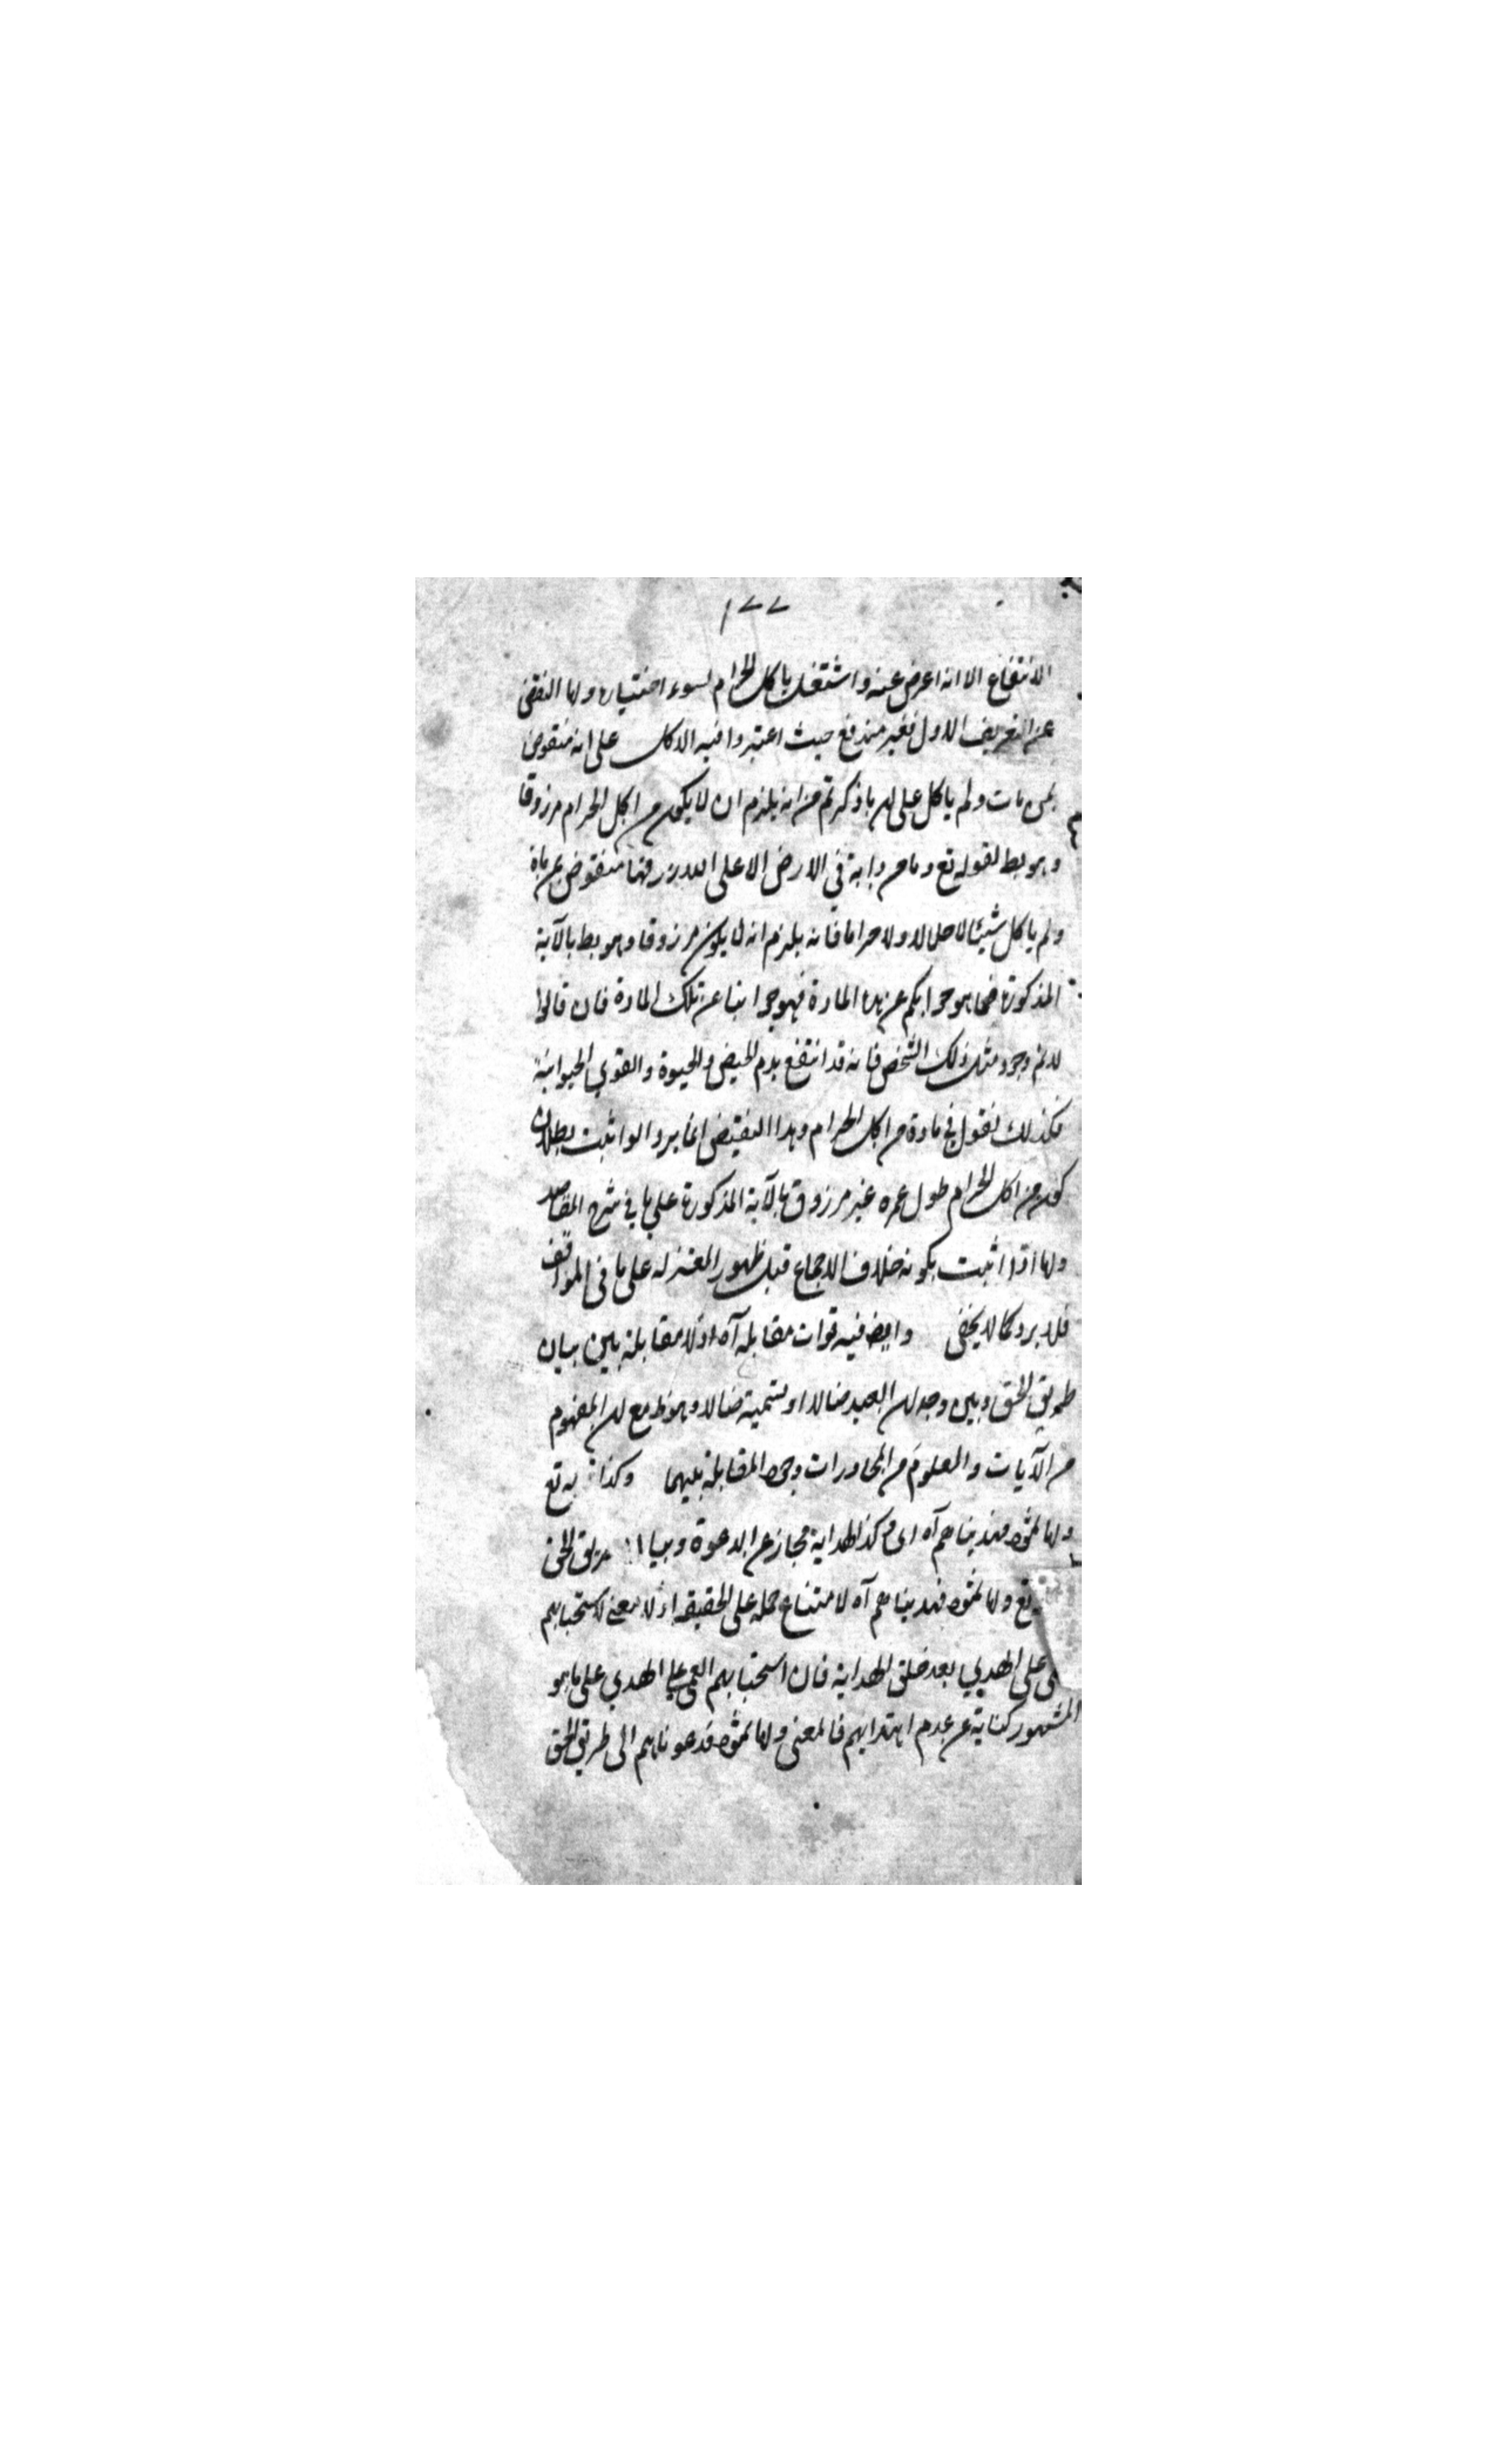 ١٢٢
الانتفاع الا انه اعرض عنه واشتغل باكل الحرام لسوء اختياره واما النقض
عن التعريف الاول فغير مندفع حيث اعتبروا فيه الاكل على انه منقوض
بمن مات ولم ياكل على ان ما ذكرتم من انه يلزم ان لا يكون من اكل الحرام مرزوقا
وهو بط لقوله تع وما من دابة في الارض الا على الله رزقها منقوض بمن مات
ولم ياكل شيئا لا حلالا ولا حراما فانه يلزم انه لا يكون مرزوقا وهو بط بالآية
المذكورة فما هو جوابكم عن هذه المادة فهو جوابنا عن تلك المادة فان قالوا
لا نم وجود مثل ذلك الشخص فانه قد انتفع بدم الحيض والحيوة والقوي الحيوانية
فكذلك نقول في مادة من اكل الحرام وهذا النقيض انما يرد الو اثبت بطلان
كون من اكل الحرام طول عمره غير مرزوق بالآية المذكورة على ما في شرح المقاصد
واما اذا اثبت بكونه خلاف الاجماع قبل ظهور المعتزلة على ما في المواقف
فلا يرد كما لا يخفى وايض فيه فوات مقابلة آه اذ لا مقابلة بين بيان
طريق الحق وبين وجدان العبد ضالا او تسميته ضالا وهو ظ مع ان المفهوم
من الآيات والمعلوم من المحاورات وجود المقابلة بينهما وكذا به تع
واما ثمود فهديناهم آه اى وكذا الهداية مجاز عن الدعوة وبيان طريق الحق
تع واما ثمود فهديناهم آه لامتناع حمله على الحقيقة اذ لا معنى لاستحبابهم
على الهدي بعد خلق الهداية فان استحبابهم العمى على الهدي على ما هو
المشهور كناية عن عدم اهتدايهم فالمعنى واما ثمود فدعوناهم الى طريق الحق